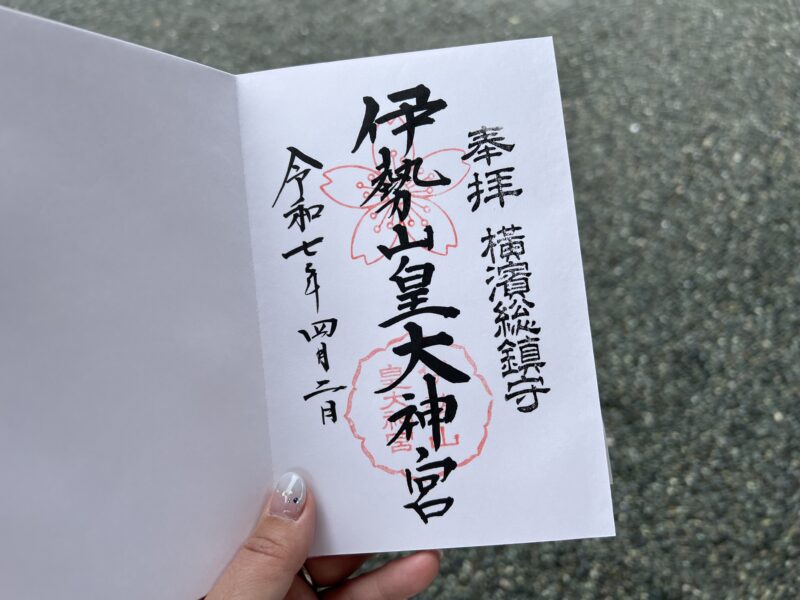 奉拝 横濱総鎮守
伊勢山皇大神宮
令和七年 四月二日
皇大神宮